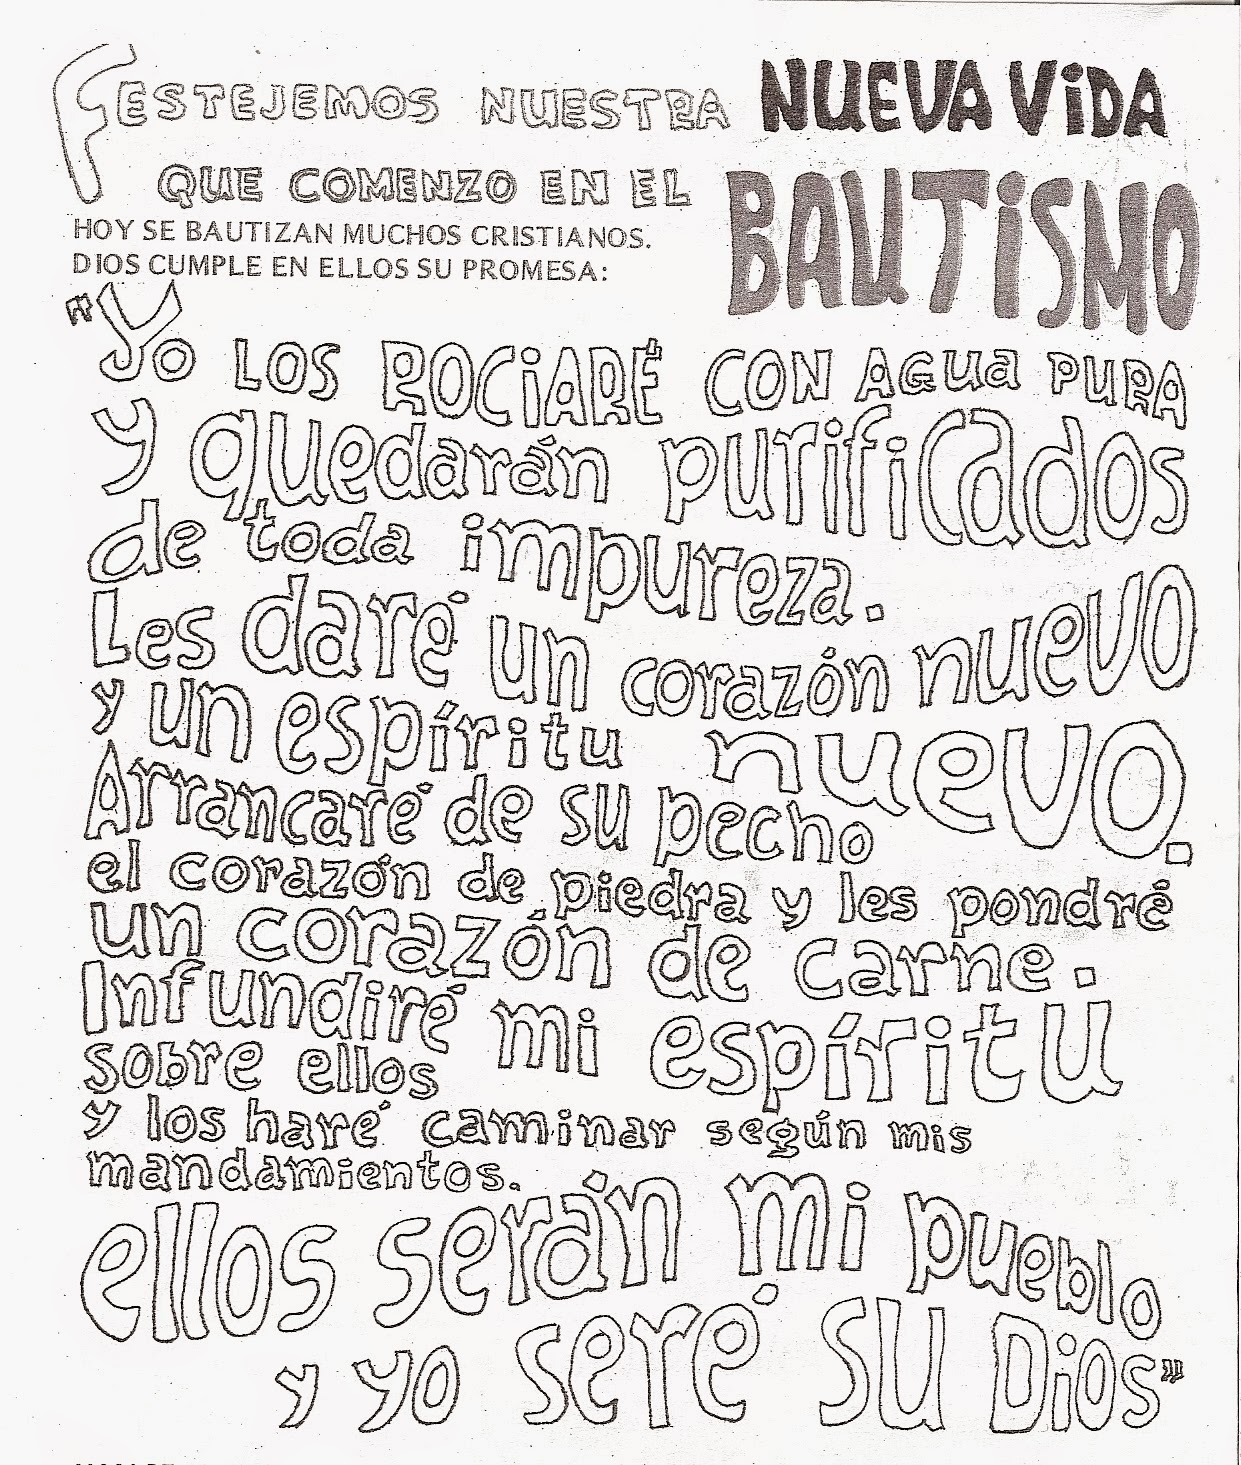 FESTEJEMOS NUESTRA NUEVA ViDA
QUE COMENZO EN EL BAUTiSMO
HOY SE BAUTIZAN MUCHOS CRISTIANOS.
DIOS CUMPLE EN ELLOS SU PROMESA:
"Yo LOS ROCiARÉ CON AGUa PURA
y quedarán purificados
de toda impureza.
Les daré un corazón nuevo
y un espíritu nuevo.
Arrancaré de su pecho
el corazón de piedra y les pondré
un corazón de carne.
Infundiré mi espíritu
sobre ellos
y los haré caminar según mis
mandamientos.
ellos serán mi pueblo
y yo seré su Dios"